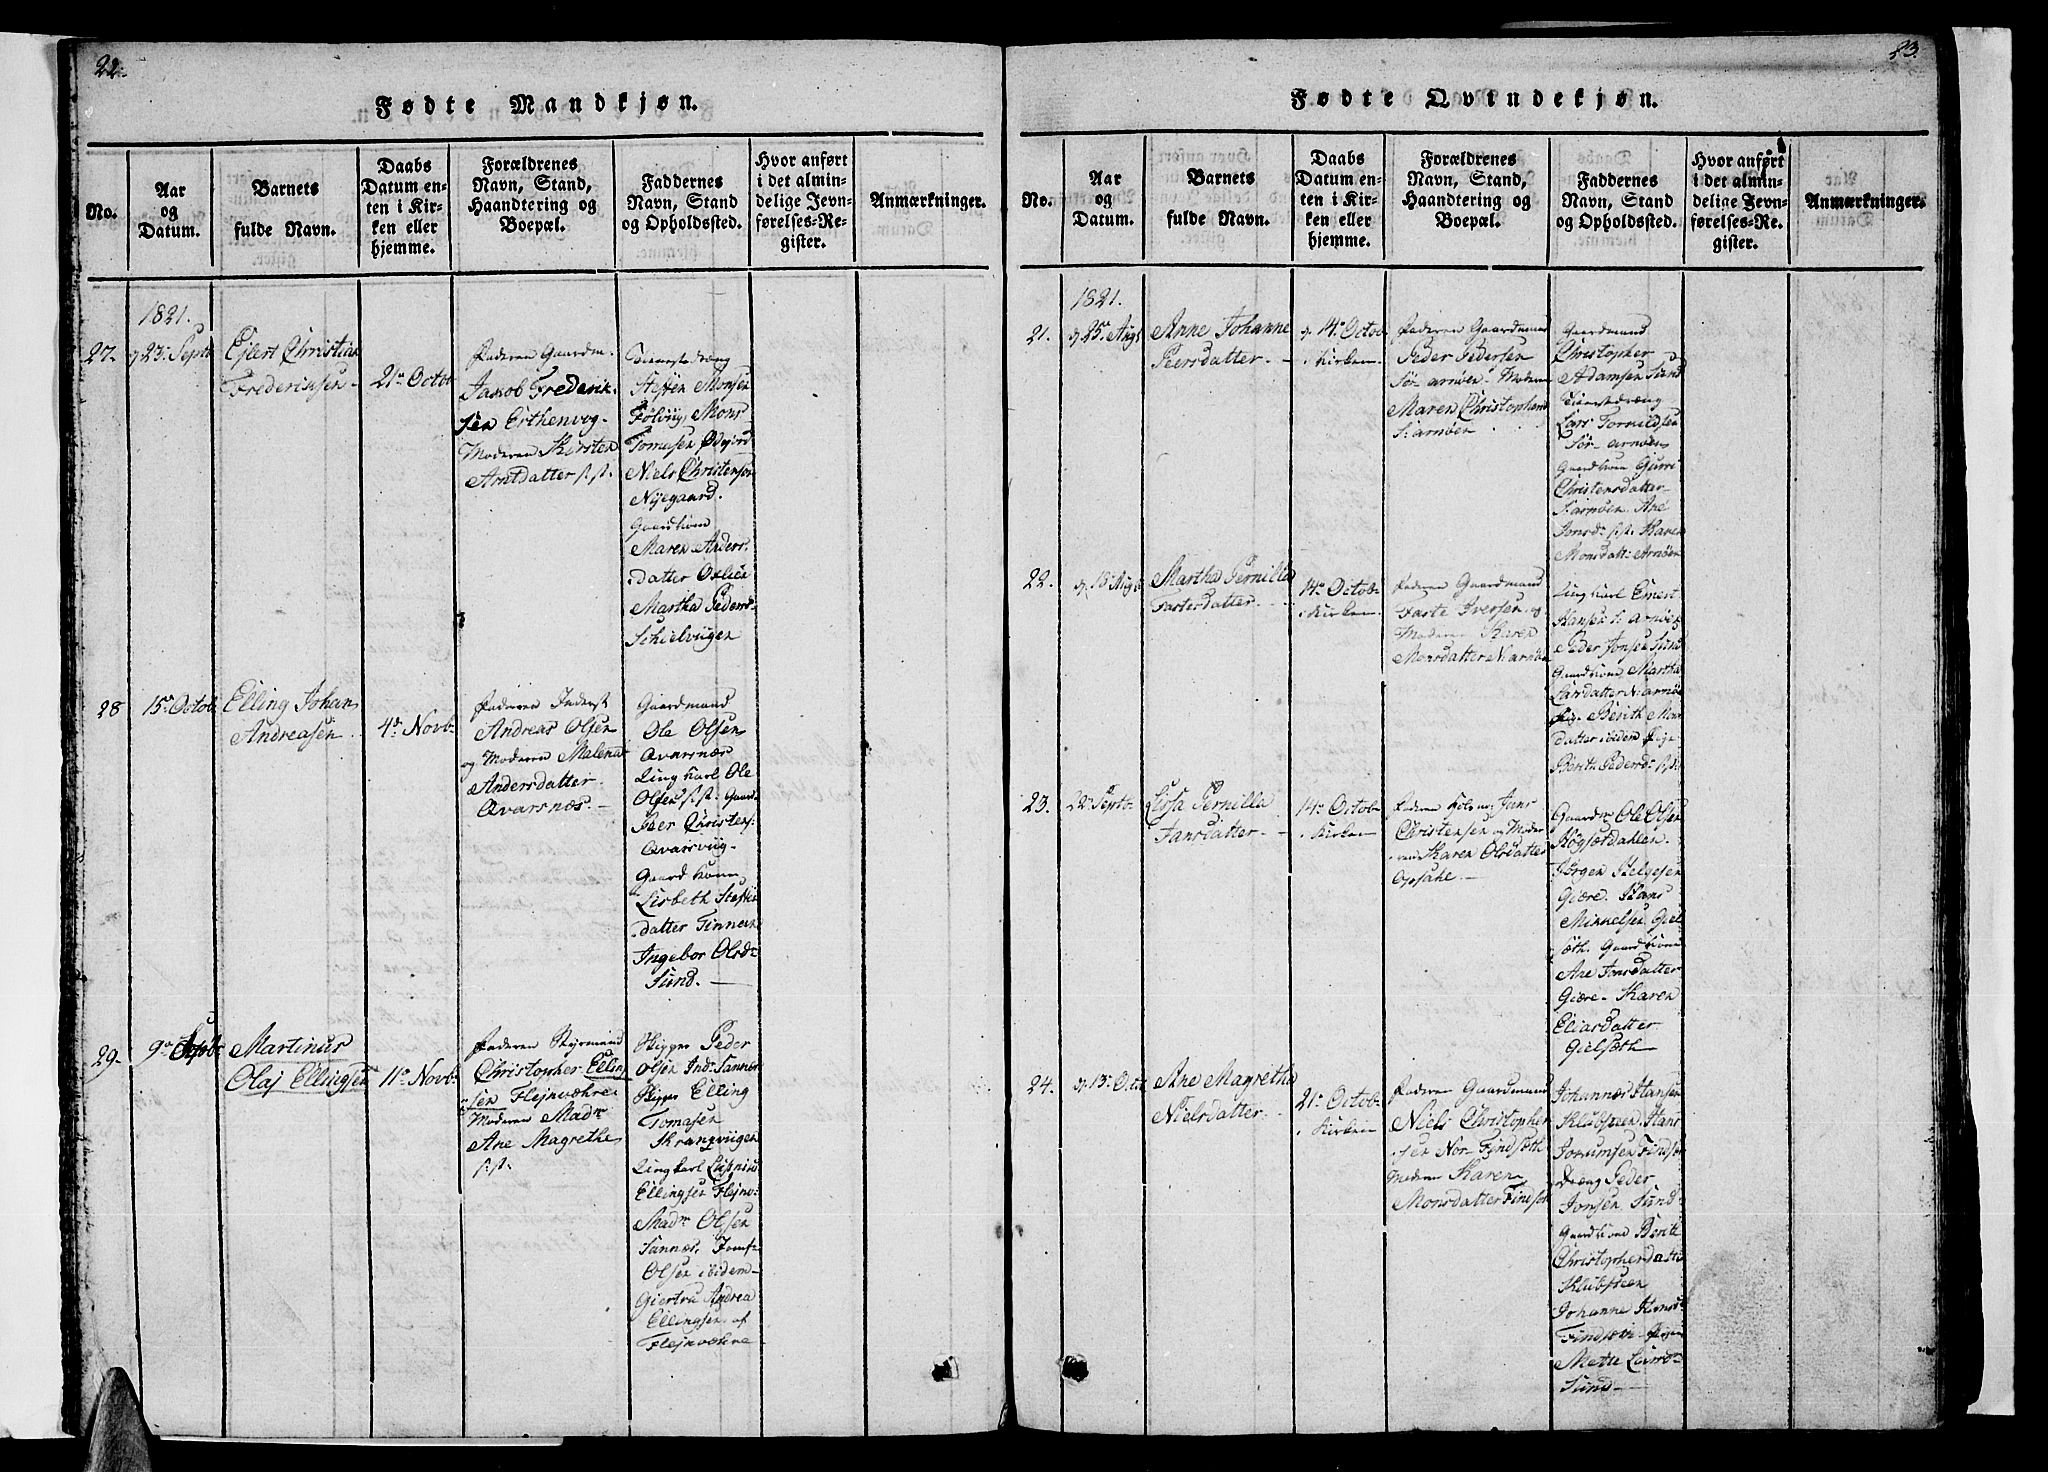 22.
Fødte Mandkjøn.
No.
Aar
og
Datum.
Barnets
fulde Navn.
Daabs
Datum en-
ten i Kir-
ken eller
hjemme.
Forældrenes
Navn, Stand,
Haandtering og
Boepæl.
Faddernes
Navn, Stand
og Opholdssted.
Hvor anført
i det almin-
delige Jevn-
førelses-Re-
gister.
Anmærkninger.
1821.
27.
23. Septb
Ejlert Christian
Frederiksen
21de Octob
Faderen Gaardm.
Jakob Frederik-
sen Erthenvog-
Moderen Kirsten
Arntdatter s. st.
Tienestedræng
Steffen Monsen
Følvig, Mons
Tomasen Ødejord
Niels Christensen
Nÿegaard.
Gaardkone
Maren Anders-
datter Oxlien
Martha Peders-
Schielviigen
28
15de Octob.
Elling Johan
Andreasen
4de Novb.
Faderen Inderst
Andreas Olsen
og Moderen Malena
Andersdatter
Qvarsnæs.
Gaardmand
Ole Olsen
Qvarsnæs
Ungkarl Ole
Olsen s. st. Gaard-
Peer Christens:
Qvarsviig-
Gaardkone
Lisbeth Steffen
datter Finnern
Ingebor Olsd
Sund.
29.
9de Septb
Martinus
Olaj Ellingsen
11te Novb.
Faderen Styrmand
Christopher Elling
sen Flejnværre
Moderen Madm
Ane Magrethe
s. st.
Skipper Peder
Olsen Indr. Sannæs
Skipper Elling
Tomasen
Skrangviigen
Ungkarl
Ellingsen Flejnv:
Madm Olsen
Sannæs. Jomf-
Olsen ibidem-
Giertru Andrea
Ellingsen. af
Flejnværre
23.
Fødte Qvindekjøn.
No.
Aar
og
Datum.
Barnets
fulde Navn.
Daabs
Datum en-
ten i Kir-
ken eller
hjemme.
Forældrenes
Navn, Stand,
Haandtering og
Boepæl.
Faddernes
Navn, Stand
og Opholdssted.
Hvor anført
i det almin-
delige Jevn-
førelses-Re-
gister.
Anmærkninger.
1821.
21.
25de Augs
Anne Johanne
Peersdatter.
14de Octob
i Kirken
Faderen Gaardmand
Peder Pedersen
Sør-arnøen. Moderen
Maren Christophersd
S: arnøen
Gaardmand
Christopher
Adamsen Sund
Tienestedræng
Lars Tornildsen
Sør-arnøen
Gaardkone Gurri
Christensdatter
S: arnøen. Ane
Jonsd: s. st. Karen
Monsdatt: Arnøen
22.
18. Augs
Martha Pernilla
Fartesdatter.
14de Octob
i Kirken
Faderen Gaardmand
Farte Iversen. og
Moderen Karen
Monsdatter N: arnøen
Ungkarl Emert
Hansen S: arnøen
Peder Jonsen Sund
Gaardkone Martha
Larsdatter N: arnøe
Berith Mons
datter ibidem Pige
Berith Pedersd: s. st.
23.
22. Septb.
Lissa Pernilla
Jansdatter.
14de Octob
i Kirken
Faderen Jans
Christensen og Moder
en Karen Olsdatter
Opsahl.
Gaardm Ole Olsen
Høgsætdahlen.
Jørgen Helgesen
Giære. Hans
Mikkelsen Giel-
sæth. Gaardkone
Ane Jonsdatter
Giære. Karen
Eliasdatter
Gielsæth
24.
13. Octb
Ane Magretha
Nielsdatter.
21de Octob
i Kirken
Faderen Gaardmand
Niels Christopher
sen Nor-Findsæth
Moderen Karen
Monsdatter Findset
Johannes Hansen
Klubskeen. Hans
Joramsen Findsæ
dræng Peder
Jonsen Sund-
Gaardkone Berit
Christophersdatt
Klubskeen
Johanne Hansd:
Findsæth Pigen
Mette Larsd
Sund